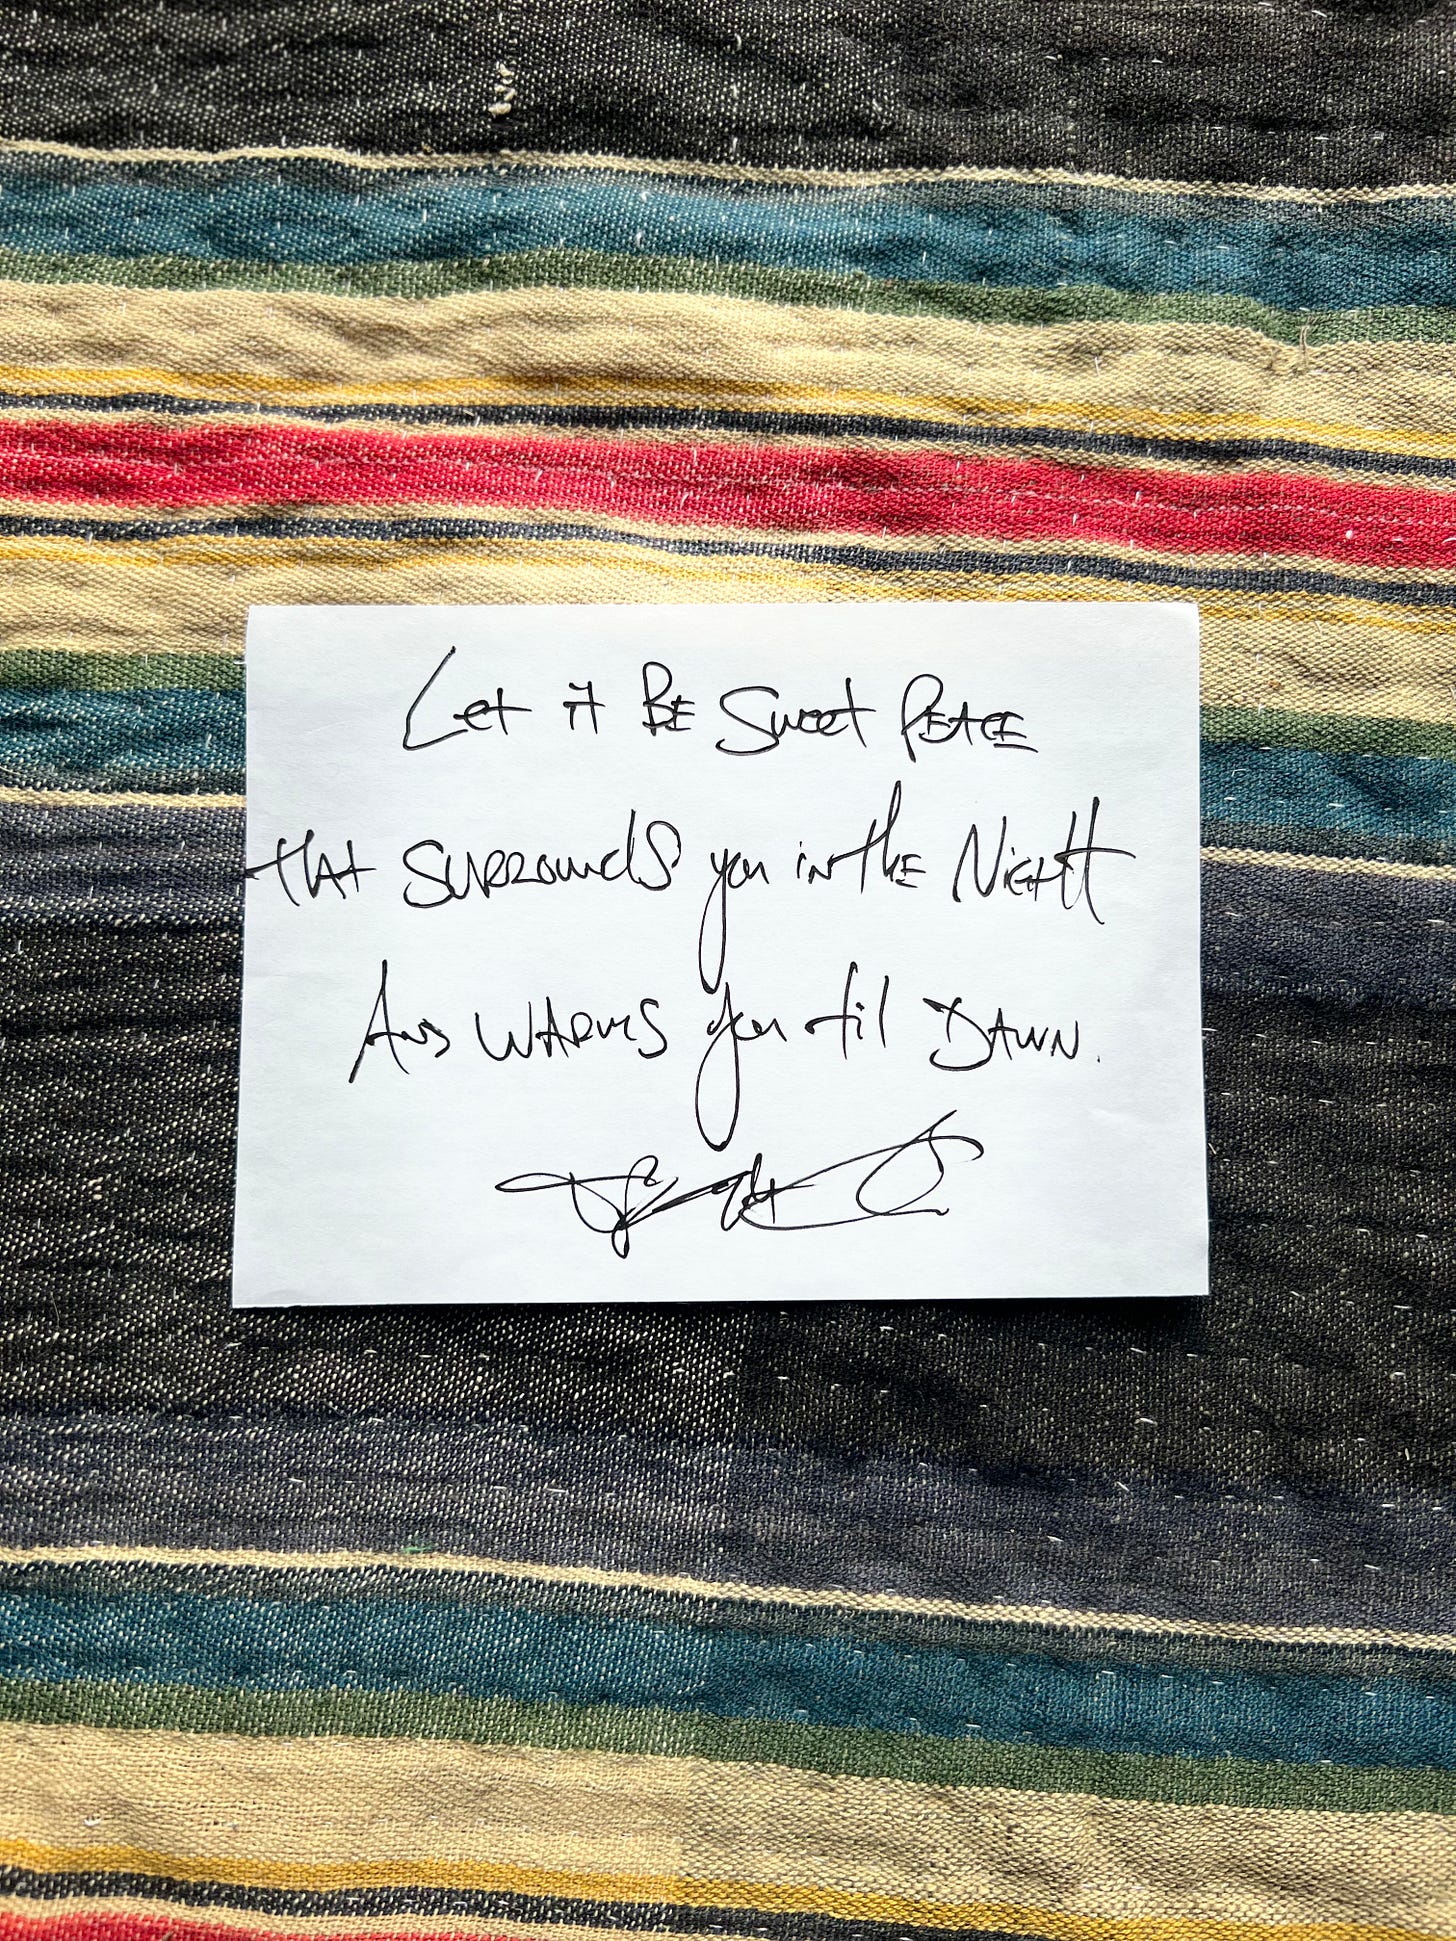 Let it Be Sweet Peace
that surrounds you in the Night
And warms you til Dawn.